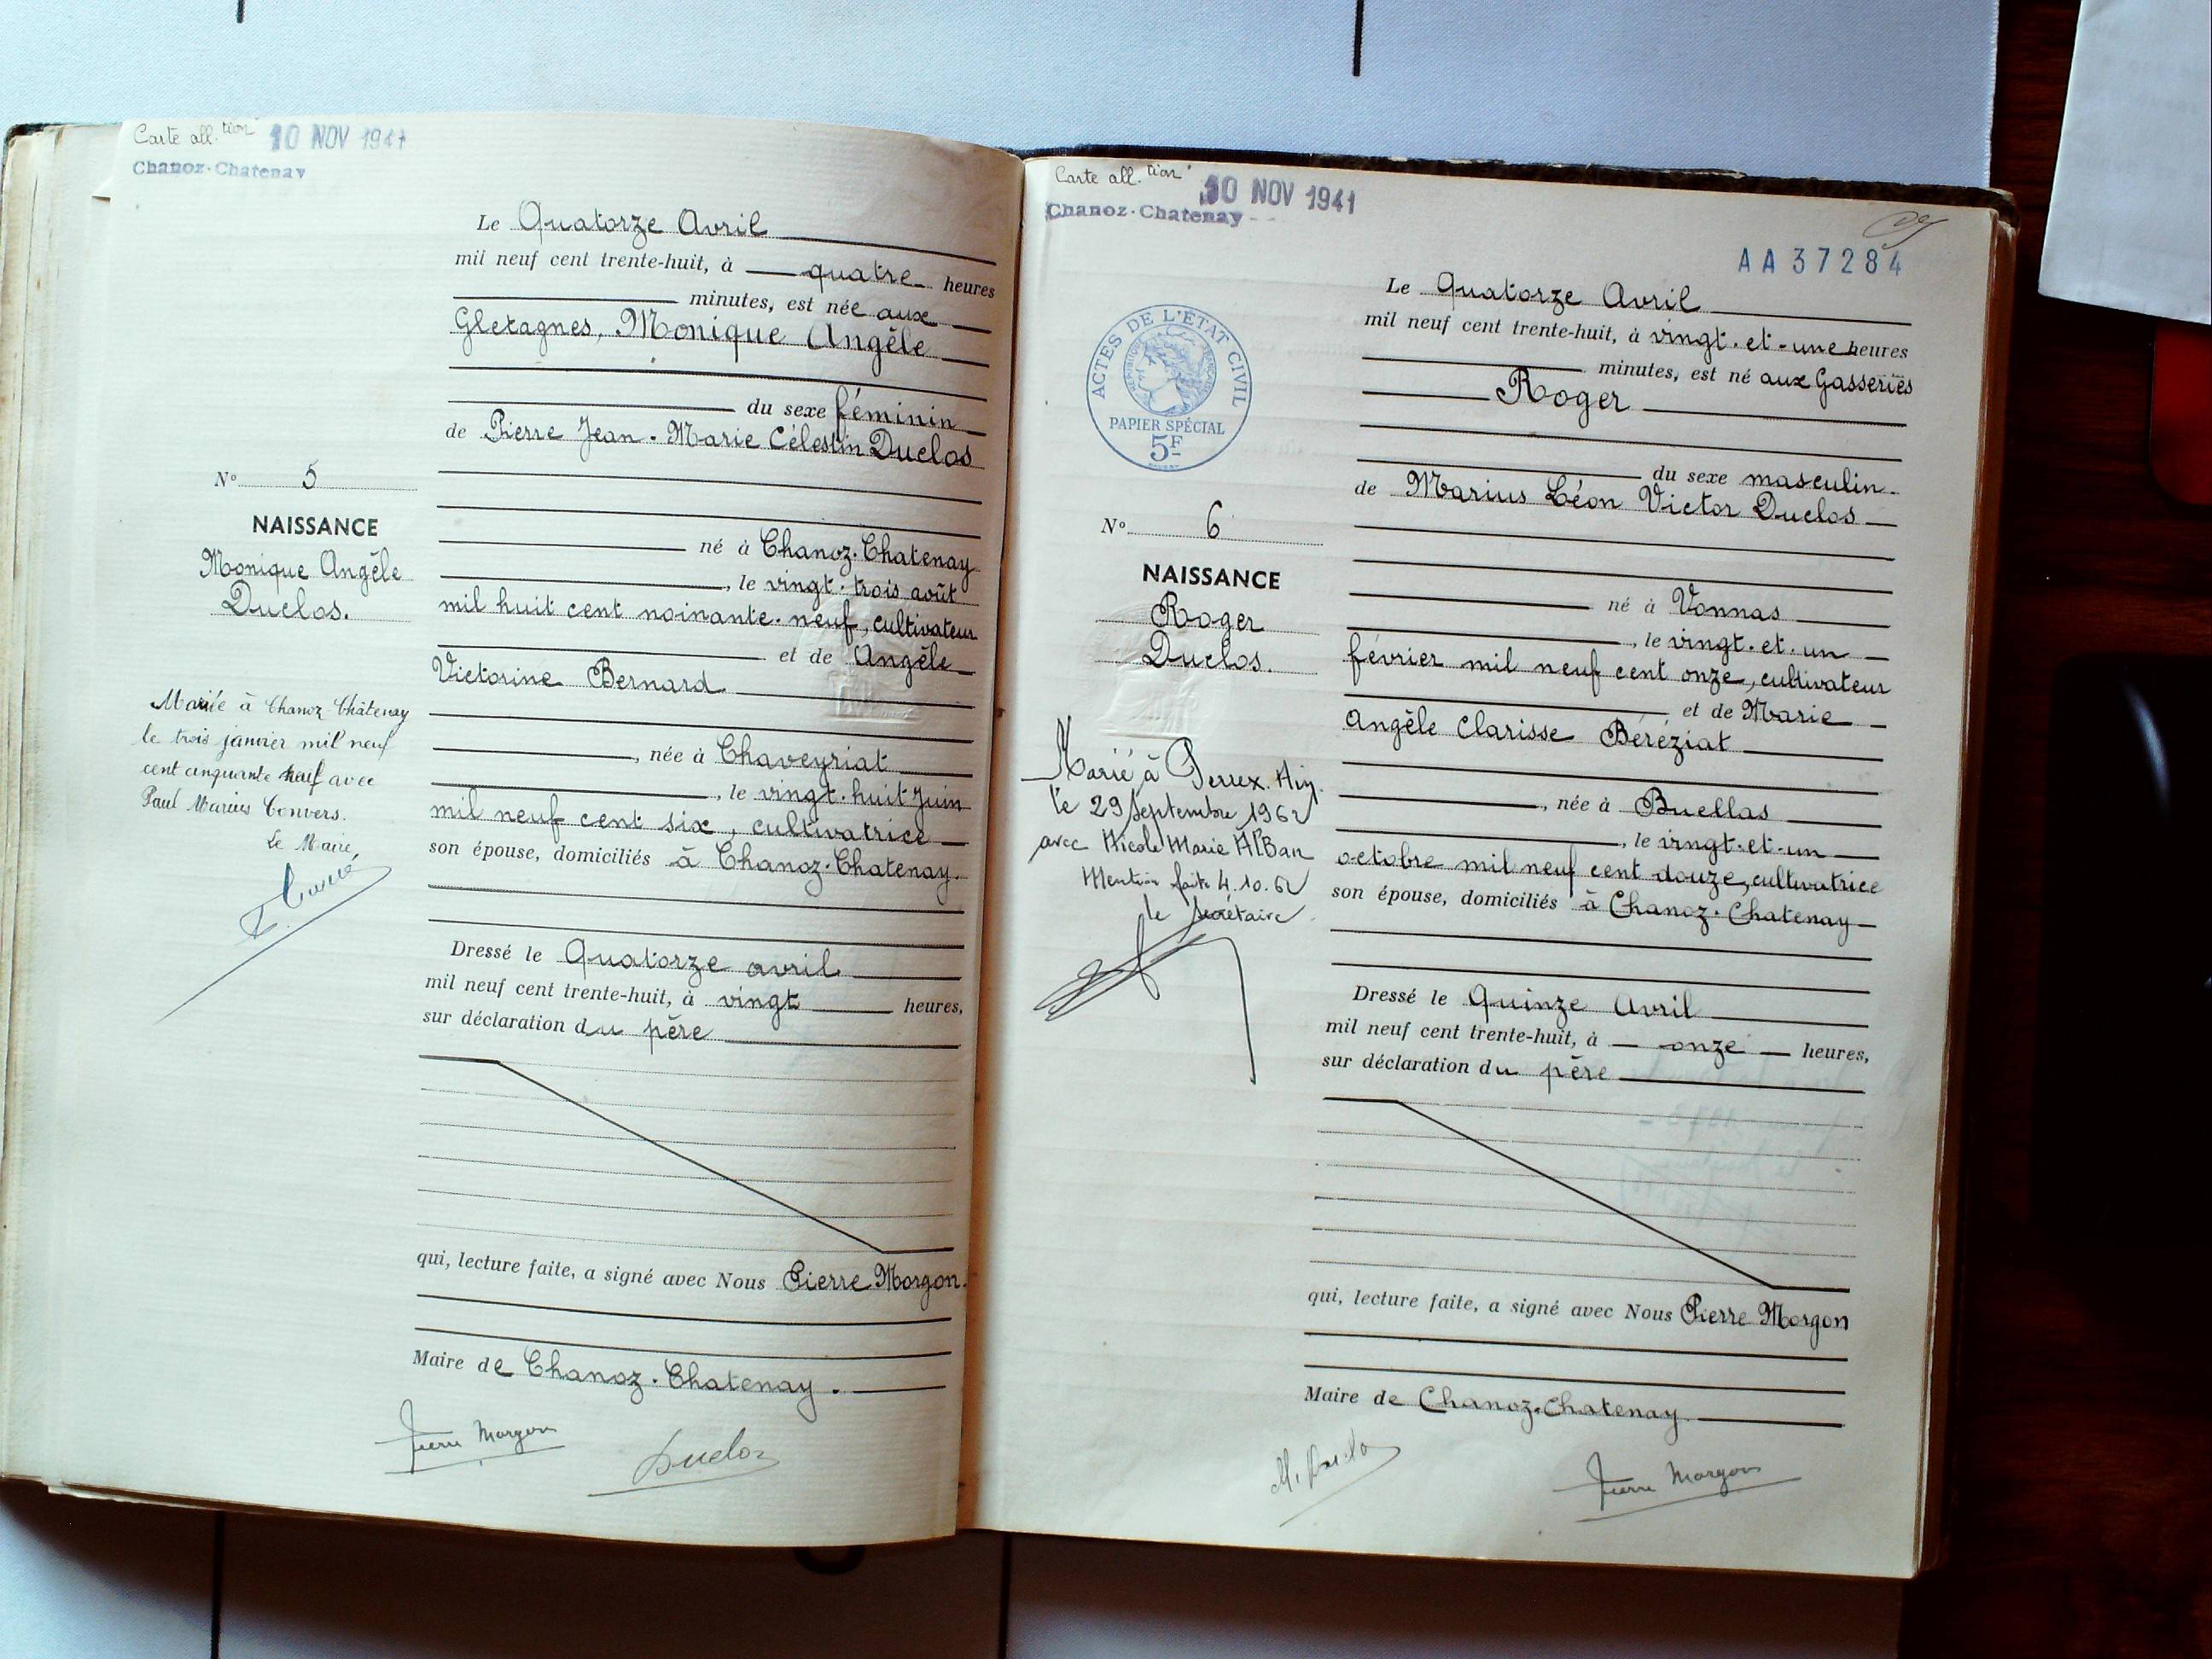 Carte all.tion 10 NOV 1941
Chanoz-Chatenay
Le Quatorze Avril
mil neuf cent trente-huit, à quatre heures
minutes, est née aux
Gletagnes, Monique Angèle
du sexe féminin
de Pierre Jean-Marie Célestin Duclos
N° 5
NAISSANCE
Monique Angèle
Duclos.
né à Chanoz-Chatenay
, le vingt-trois août
mil huit cent noinante-neuf, cultivateur
et de Angèle
Victorine Bernard
, née à Chaveyriat
, le vingt-huit Juin
mil neuf cent six, cultivatrice
son épouse, domiciliés à Chanoz-Chatenay.
Mariée à Chanoz Châtenay
le trois janvier mil neuf
cent cinquante neuf avec
Paul Marius Convers.
Le Maire,
Dressé le Quatorze avril
mil neuf cent trente-huit, à vingt heures,
sur déclaration du père
qui, lecture faite, a signé avec Nous Pierre Morgon.
Maire de Chanoz-Chatenay.
Pierre Morgon
Duclos
Carte all.tion 10 NOV 1941
Chanoz-Chatenay
AA 37284
ACTES DE L'ÉTAT CIVIL
RÉPUBLIQUE FRANÇAISE
PAPIER SPÉCIAL
5F
Le Quatorze Avril
mil neuf cent trente-huit, à vingt-et-une heures
minutes, est né aux Gasseries
Roger
du sexe masculin
de Marius Léon Victor Duclos
N° 6
NAISSANCE
Roger
Duclos.
né à Vonnas
, le vingt-et-un
février mil neuf cent onze, cultivateur
et de Marie
Angèle Clarisse Béréziat
, née à Buellas
, le vingt-et-un
octobre mil neuf cent douze, cultivatrice
son épouse, domiciliés à Chanoz-Chatenay
Marié à Perrex. Ain.
le 29 Septembre 1962
avec Nicole Marie Alban
Mention faite 4.10.62
le secrétaire
Dressé le Quinze Avril
mil neuf cent trente-huit, à onze heures,
sur déclaration du père
qui, lecture faite, a signé avec Nous Pierre Morgon
Maire de Chanoz-Chatenay
M. Duclo
Pierre Morgon